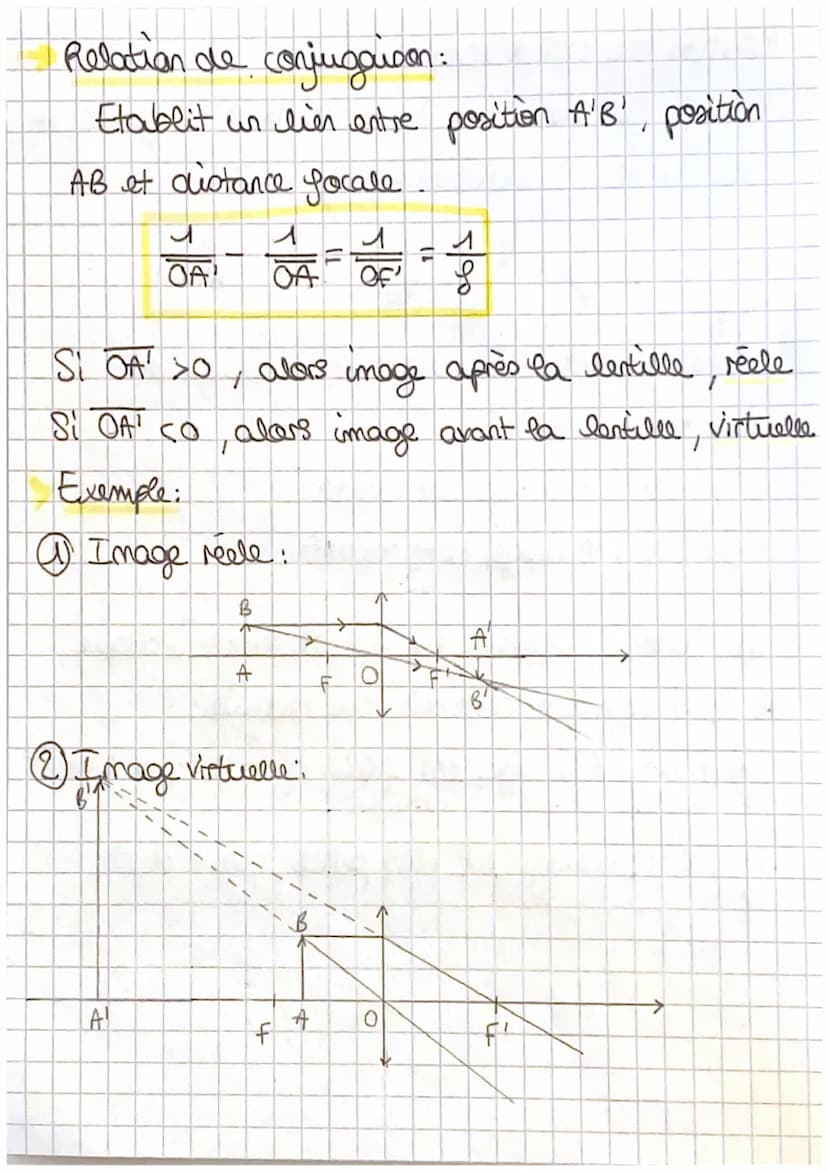 Relation de conjugaison:
Etablit un lien entre position A'B', position
AB et distance focale.
1/OA' - 1/OA = 1/OF' = 1/f
Si OA' >0, alors image après la lentille, réele
Si OA' <0, alors image avant la lentille, virtuelle
Exemple:
① Image réele:
B
A'
A F O F' B'
② Image virtuelle:
B'
B
A' F A O F'